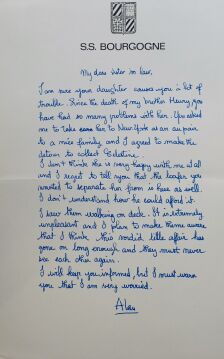 S.S. BOURGOGNE
My dear sister in law,
I am sure your daughter causes you a lot of
trouble. Since the death of my brother Henry, you
have had so many problems with her. You asked
me to take her to New York as an au pair
to a nice family and I agreed to make the
detour to collect Celestine.
I don't think she is very happy with me at all
and I regret to tell you that the loafer you
wanted to separate her from is here as well.
I don't understand how he could afford it.
I saw them walking on deck. It is extremely
unpleasant and I plan to make them aware
that I think this sordid little affair has
gone on long enough and they must never
see each other again.
I will keep you informed, but I must warn
you that I am very worried.
Alan